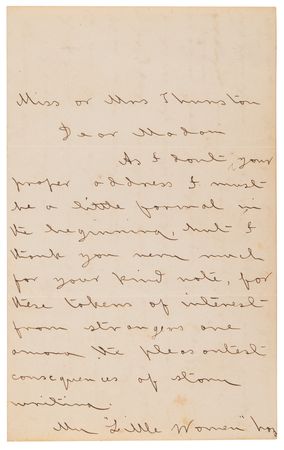 Miss or Mrs Thurston
Dear Madam
As I don't your
proper address I must
be a little formal in
the beginning, but I
thank you very much
for your kind note, for
these tokens of interest
from strangers are
among the pleasantest
consequences of story
writing.
My "Little Women" has